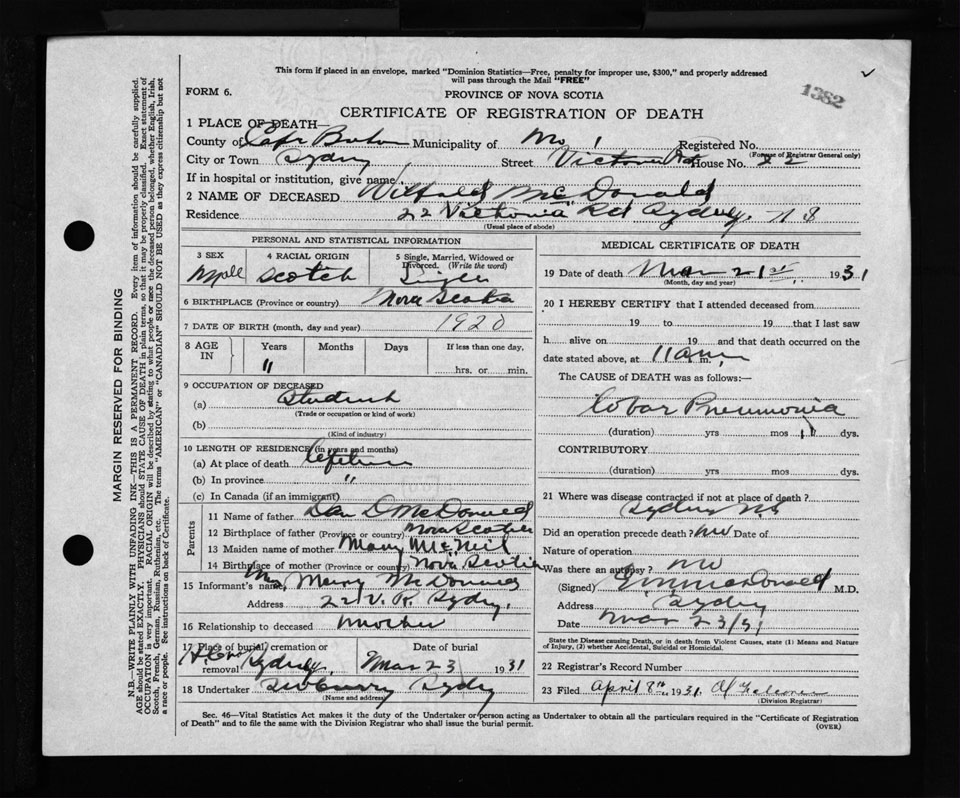 This form if placed in an envelope, marked "Dominion Statistics—Free, penalty for improper use, $300," and properly addressed
will pass through the Mail "FREE"
1382
FORM 6.
PROVINCE OF NOVA SCOTIA
CERTIFICATE OF REGISTRATION OF DEATH
1 PLACE OF DEATH—
County of Cape Breton Municipality of Registered No.
(For use of Registrar General only)
City or Town Sydney Street Victoria Rd House No. 22
If in hospital or institution, give name
2 NAME OF DECEASED Wilfred McDonald
Residence 22 Victoria Rd Sydney. N S
(Usual place of abode)
PERSONAL AND STATISTICAL INFORMATION
3 SEX Male
4 RACIAL ORIGIN Scotch
5 Single, Married, Widowed or Divorced. (Write the word) Single
6 BIRTHPLACE (Province or country) Nova Scotia
7 DATE OF BIRTH (month, day and year) 1920
8 AGE IN Years Months Days If less than one day,
11 hrs. or min.
9 OCCUPATION OF DECEASED
(a) Student
(Trade or occupation or kind of work)
(b)
(Kind of industry)
10 LENGTH OF RESIDENCE (in years and months)
(a) At place of death Lifetime
(b) In province "
(c) In Canada (if an immigrant)
Parents
11 Name of father Dan D McDonald
12 Birthplace of father (Province or country) Nova Scotia
13 Maiden name of mother Mary McNeil
14 Birthplace of mother (Province or country) Nova Scotia
15 Informant's name Mrs Mary McDonald
Address 22 V. R. Sydney.
16 Relationship to deceased Mother
17 Place of burial, cremation or removal Sydney
Date of burial Mar 23 1931
18 Undertaker Sydney
(Name and address)
MEDICAL CERTIFICATE OF DEATH
19 Date of death Mar 21st 1931
(Month, day and year)
20 I HEREBY CERTIFY that I attended deceased from
19 to 19 that I last saw
h alive on 19 and that death occurred on the
date stated above, at 11 am m.
The CAUSE OF DEATH was as follows:—
Lobar Pneumonia
(duration) yrs mos dys.
CONTRIBUTORY
(duration) yrs mos dys.
21 Where was disease contracted if not at place of death?
Sydney NS
Did an operation precede death? no Date of
Nature of operation
Was there an autopsy? no
(Signed) MacDonald M.D.
Address Sydney
Date Mar 23/31
State the Disease causing Death, or in death from Violent Causes, state (1) Means and Nature
of Injury, (2) whether Accidental, Suicidal or Homicidal.
22 Registrar's Record Number
23 Filed April 8th 1931
(Division Registrar)
Sec. 46—Vital Statistics Act makes it the duty of the Undertaker or person acting as Undertaker to obtain all the particulars required in the "Certificate of Registration
of Death" and to file the same with the Division Registrar who shall issue the burial permit.
(OVER)
MARGIN RESERVED FOR BINDING
N.B.—WRITE PLAINLY WITH UNFADING INK—THIS IS A PERMANENT RECORD. Every item of information should be carefully supplied.
AGE should be stated EXACTLY. PHYSICIANS should STATE CAUSE OF DEATH in plain terms, so that it may be properly classified. Exact statement of
OCCUPATION is very important. RACIAL ORIGIN will be described by stating to what people or race the deceased person belonged, whether English, Irish,
Scotch, French, German, Russian, Ruthenian, etc. The terms "AMERICAN" or "CANADIAN" SHOULD NOT BE USED as they express citizenship but not
a race or people. See instructions on back of Certificate.